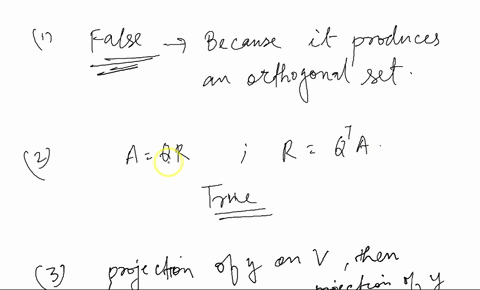 (1) False → Because it produces
an orthogonal set.
(2) A = QR ; R = Q^T A.
True
(3) projection of y on V, then
projection of y